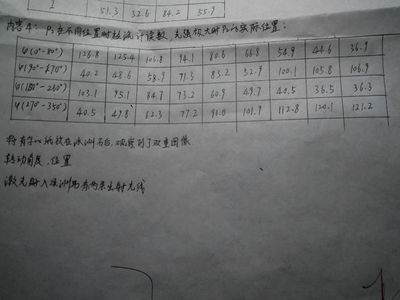 1 51.3 32.6 84.2 55.9
内容4: P₂在不同位置时检流计读数,光强极大时P₂的实际位置:
φ(0°-80°) 126.8 125.4 106.8 94.1 80.6 66.8 54.9 44.6 36.9
φ(90°-170°) 40.2 48.6 58.9 71.3 83.2 100.1 105.8 106.9
φ(180°-260°) 103.1 95.1 84.7 73.2 60.9 49.7 40.5 36.5 36.3
φ(270°-350°) 40.5 49.8 62.3 77.2 91.0 101.9 112.8 120.1 121.2
将有字的纸放在冰洲石后,观察到了双重图像
转动角度,位置
激光射入冰洲石有两束出射光线